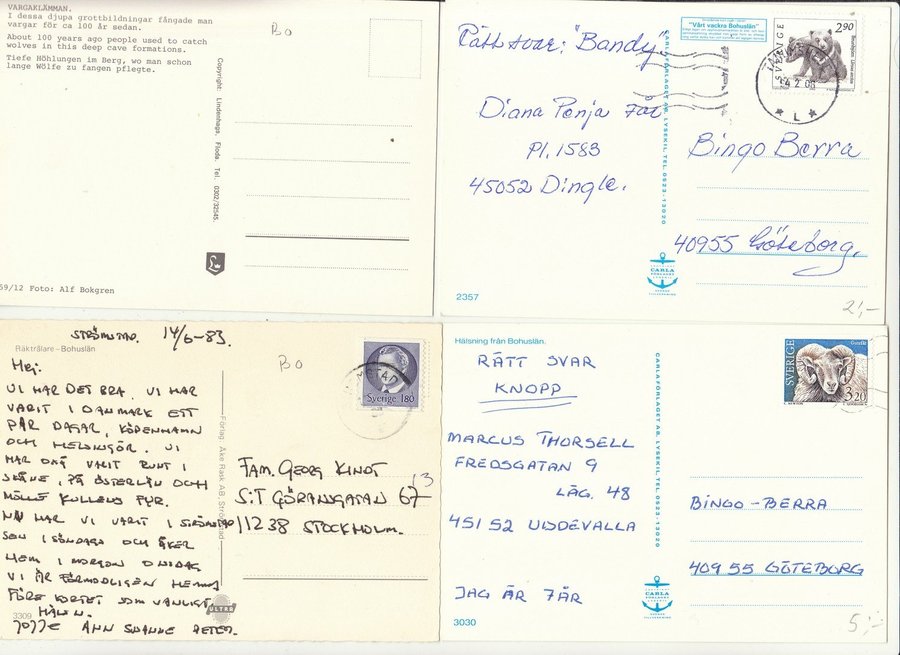 VARGAKLÄMMAN.
I dessa djupa grottbildningar fångade man
vargar för ca 100 år sedan.
About 100 years ago people used to catch
wolves in this deep cave formations.
Tiefe Höhlungen im Berg, wo man schon
lange Wölfe zu fangen pflegte.
Bo
Copyright: Lindenhags, Floda. Tel. 0302/32545.
L
59/12 Foto: Alf Bokgren
Rätt svar: "Bandy"
Diana Penja 7år
Pl. 1583
45052 Dingle.
2357
CARLAFÖRLAGET AB, LYSEKIL, TEL. 0523-13020
CARLA
FÖRLAGET
"Vårt vackra Bohuslän"
SVERIGE
2.90
L
Bingo Berra
40955 Göteborg.
2:-
STRÖMSTAD. 14/6-83.
Räktrålare - Bohuslän
Hej.
VI HAR DET BRA. VI HAR
VARIT I DANMARK ETT
PAR DAGAR, KÖPENHAMN
OCH HELSINGÖR. VI
HAR OXÅ VARIT RUNT I
SKÅNE, PÅ ÖSTERLEN OCH
MÖLLE KULLENS FYR.
NU HAR VI VARIT I STRÖMSTAD
SEN I SÖNDAGS OCH ÅKER
HEM I MORGON ONSDAG
VI ÄR FÖRMODLIGEN HEMMA
FÖRE KORTET SOM VANLIGT.
ANN PETER.
3309
Förlag: Åke Rask AB, Strömstad
ULTRA
Bo
Sverige 180
FAM. GEORG KINDT
S:T GÖRANSGATAN 67
11238 STOCKHOLM.
Hälsning från Bohuslän.
RÄTT SVAR
KNOPP
MARCUS THORSELL
FREDSGATAN 9
LÄG. 48
451 52 UDDEVALLA
JAG ÄR 7ÅR
3030
CARLAFÖRLAGET AB, LYSEKIL, TEL. 0523-13020
CARLA
FÖRLAGET
SVERIGE
Gutefår
3.20
BINGO-BERRA
409 55 GÖTEBORG
5:-